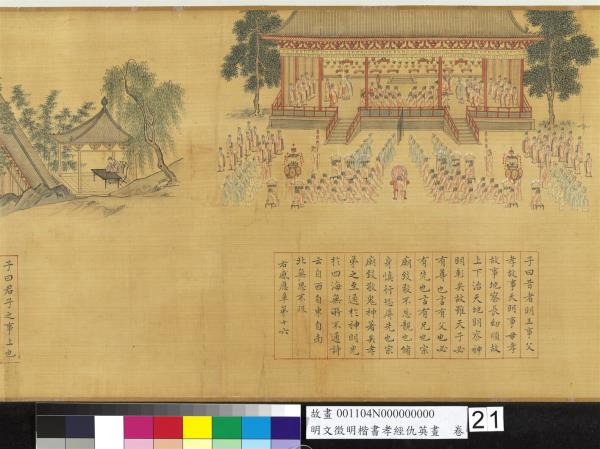 子曰昔者明王事父
孝故事天明事母孝
故事地察長幼順故
上下治天地明察神
明彰矣故雖天子必
有尊也言有父也必
有先也言有兄也宗
廟致敬不忘親也脩
身慎行恐辱先也宗
廟致敬鬼神著矣孝
弟之至通於神明光
於四海無所不通詩
云自西自東自南
北無思不服
右感應章第十六
子曰君子之事上也
故畫 001104N000000000
明文徵明楷書孝經仇英畫 卷
21